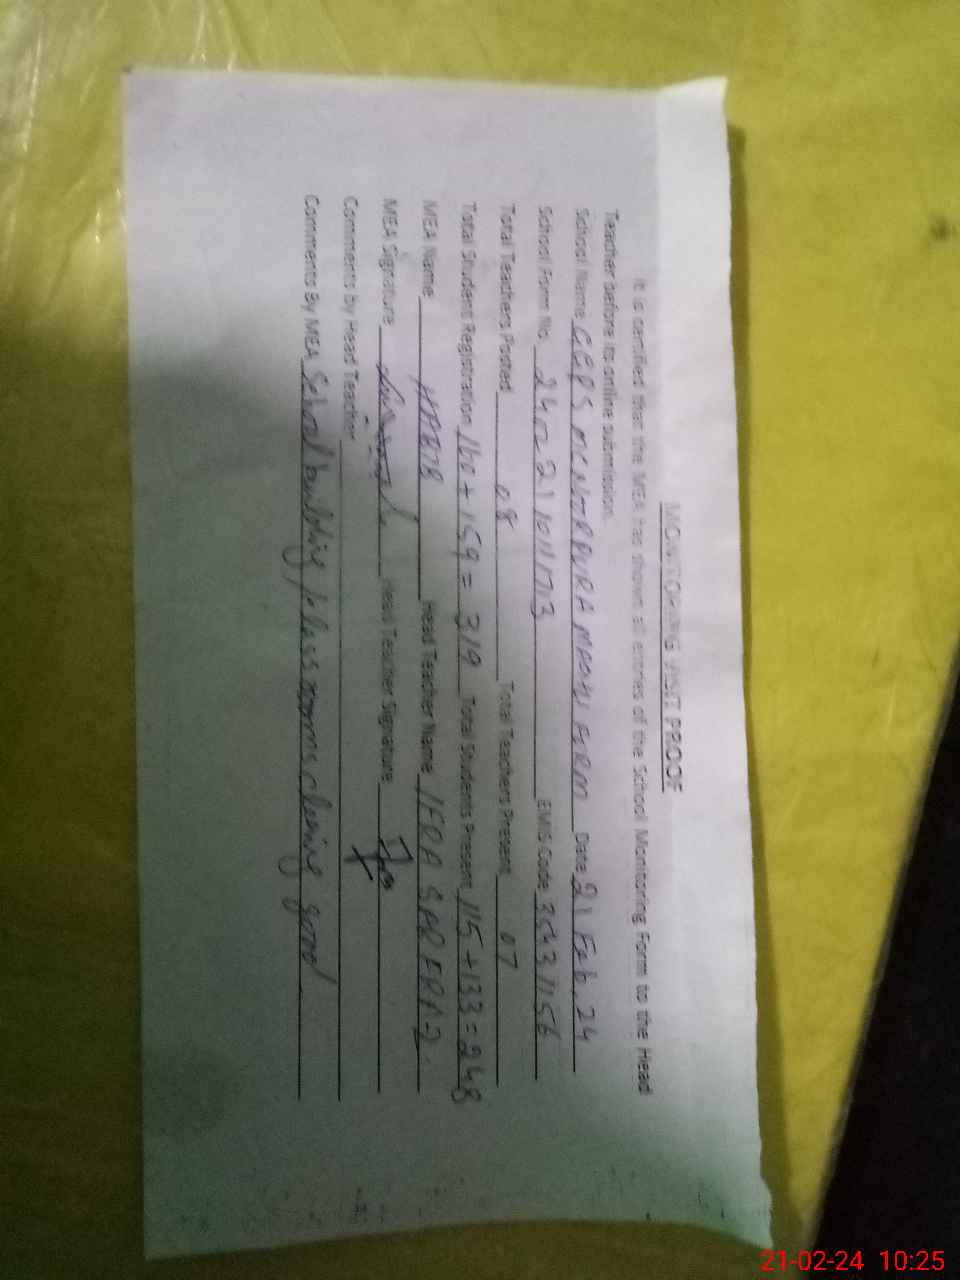 MONITORING VISIT PROOF
It is certified that the MEA has shown all entries of the School Monitoring Form to the Head
Teacher before its online submission.
School Name GGPS Date 21 Feb, 24
School Form No. EMIS Code
Total Teachers Posted 08 Total Teachers Present 07
Total Student Registration 160 + 159 = 319 Total Students Present 115 + 133 = 248
MEA Name HABIB Head Teacher Name IFRA SARFRAZ.
MEA Signature Head Teacher Signature
Comments by Head Teacher
Comments By MEA School building, classrooms good
21-02-24 10:25